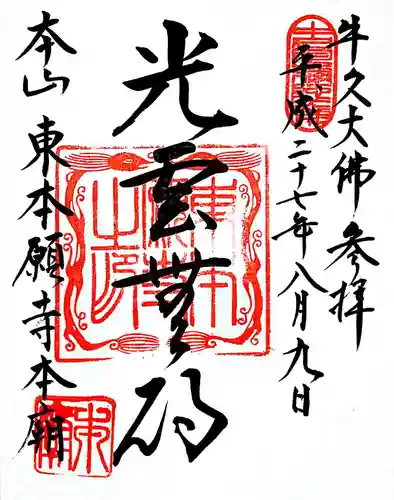 牛久大佛 参拝
平成二十七年八月九日
光雲無碍
本山 東本願寺本廟